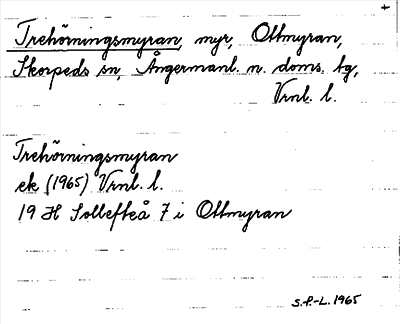 +
Trehörningsmyran, myr, Ottmyran,
Skorpeds sn, Ångermanl. n. doms. tg,
Vrnl. l.
Trehörningsmyran
ek (1965) Vrnl. l.
19 H Sollefteå 7 i Ottmyran
S.P.-L. 1965